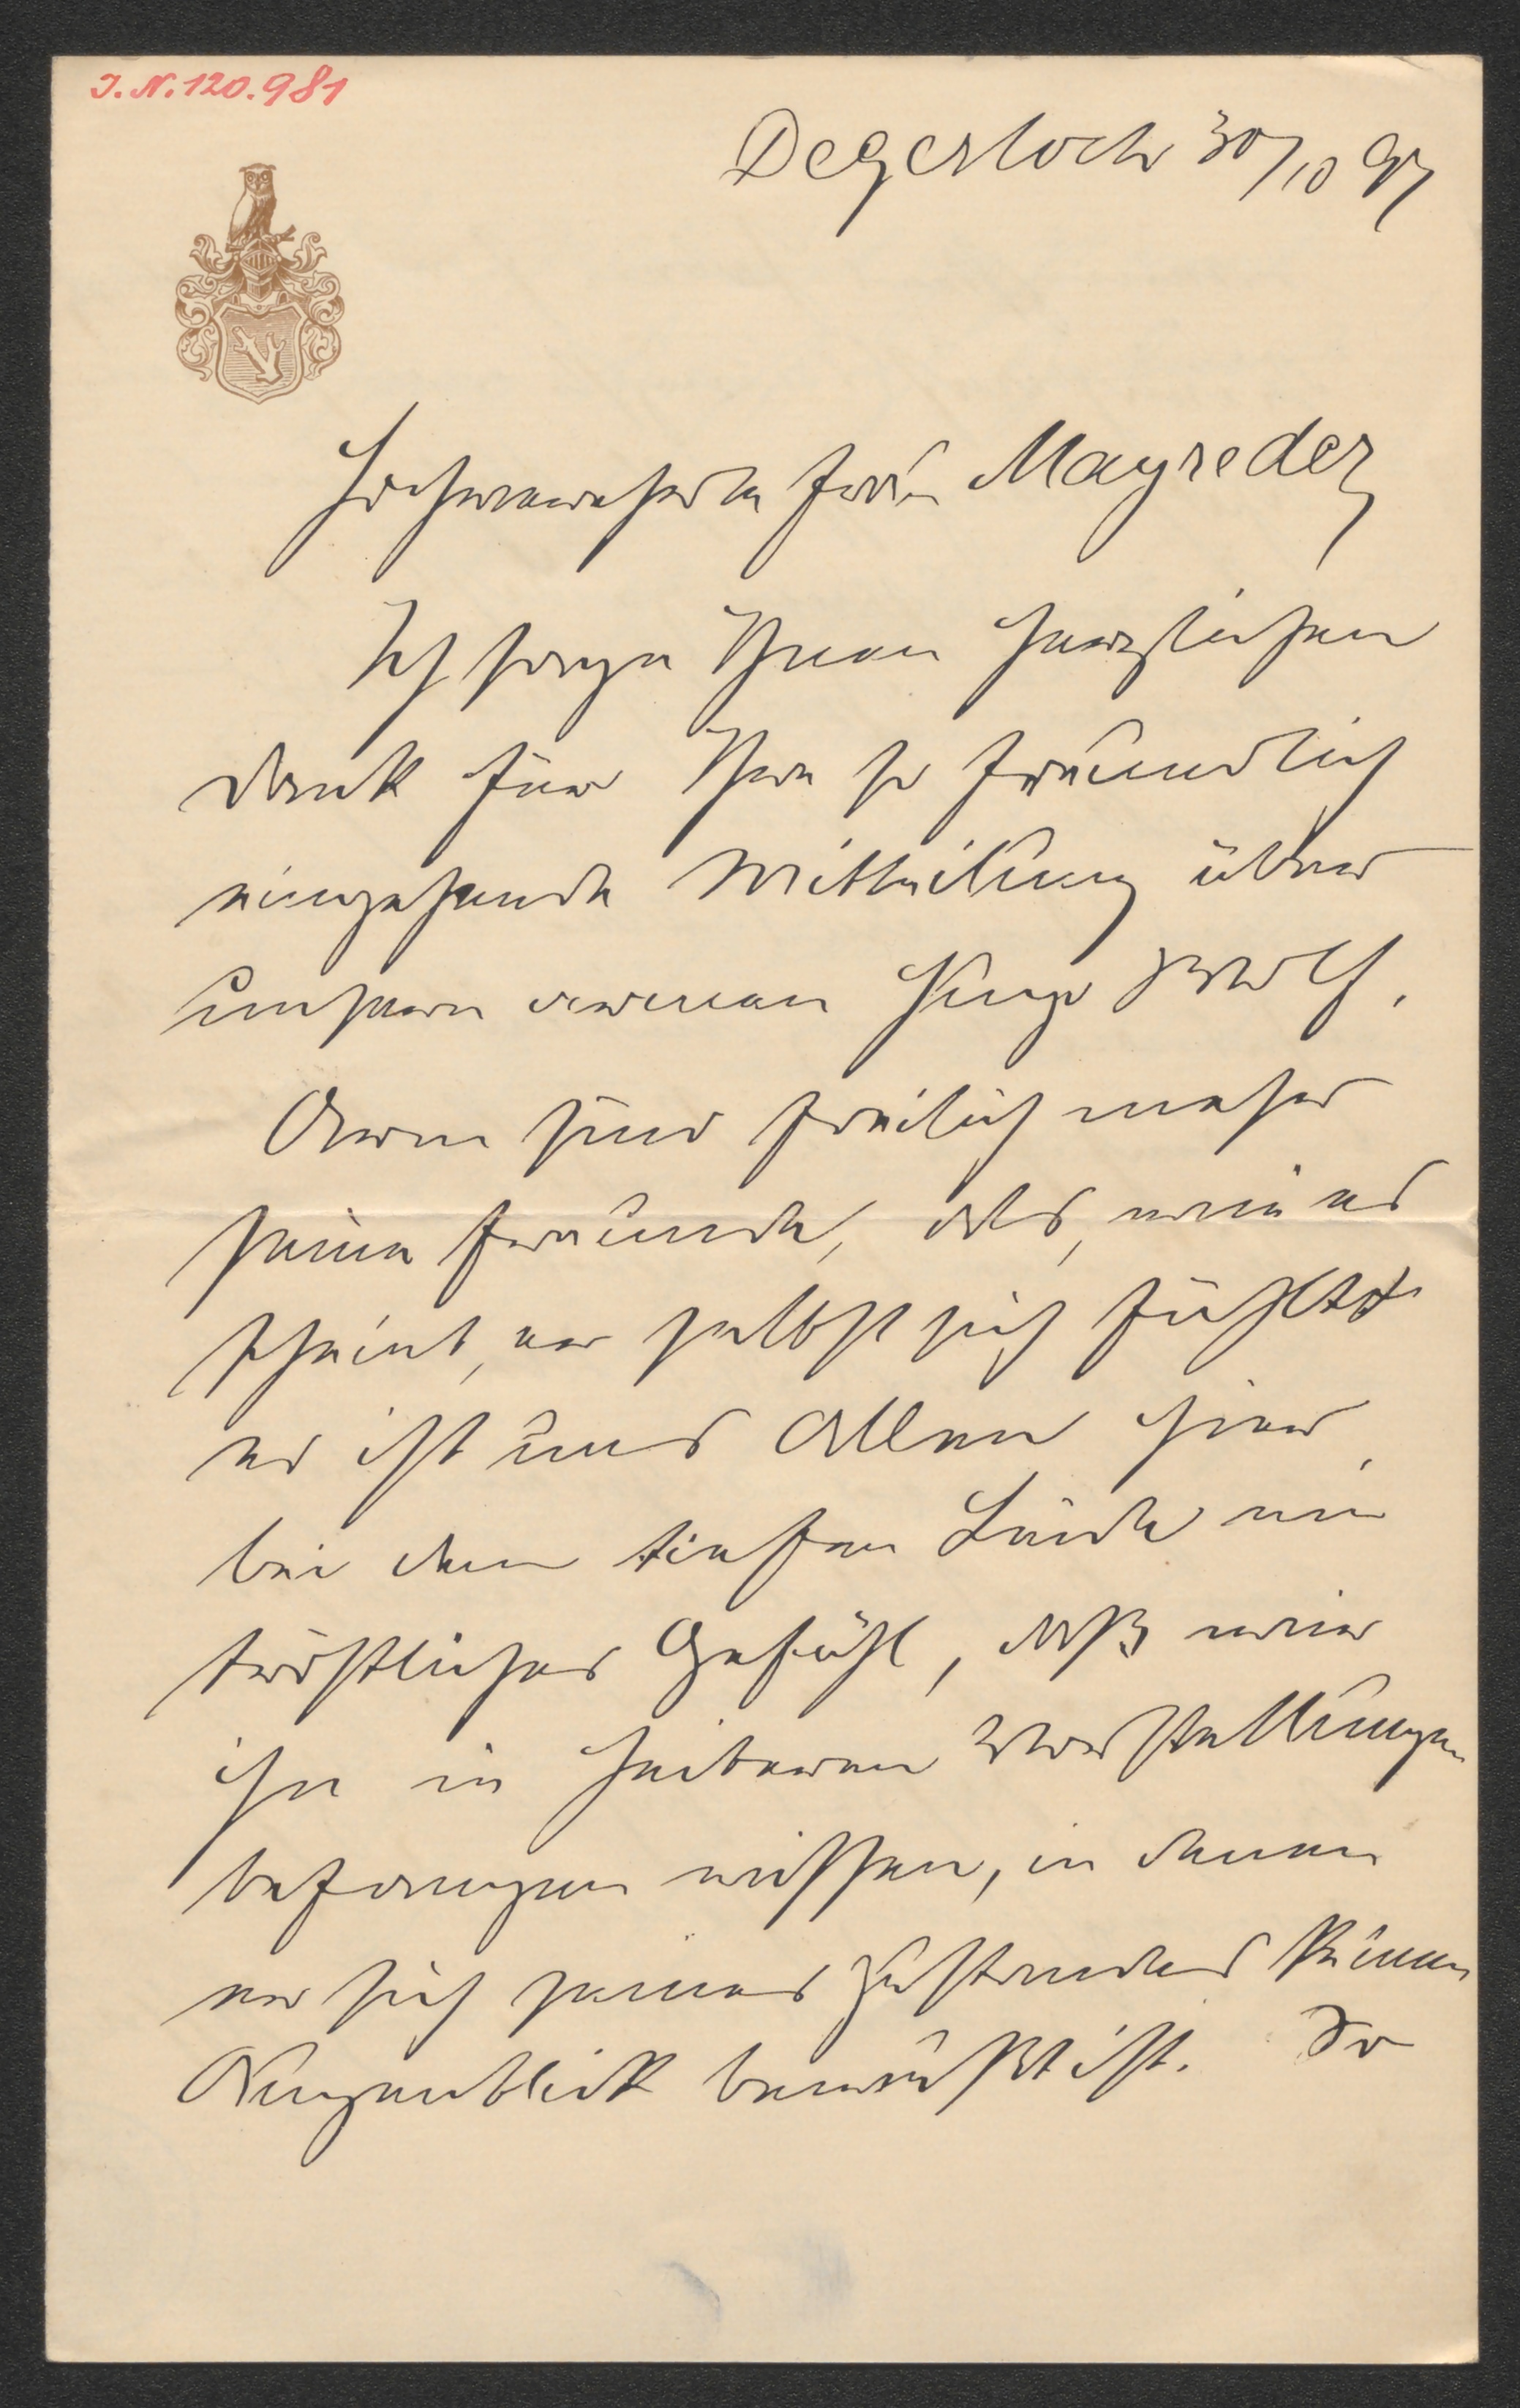 J. N. 120.981
Degerloch 30/10 97
Hochverehrte Frau Mayreder
Ich sage Ihnen herzlichen
Dank für Ihre so freundlich
eingehende Mittheilung über
unsern armen Hugo Wolf.
Arm sind freilich mehr
seine Freunde, als, wie es
scheint, er selbst sich fühlt
es ist uns Allen hier,
bei dem tiefen Leide ein
tröstliches Gefühl, daß wir
ihn in heiteren Vorstellungen
befangen wissen, in denen
er sich seines Zustandes keinen
Augenblick bewußt ist. So